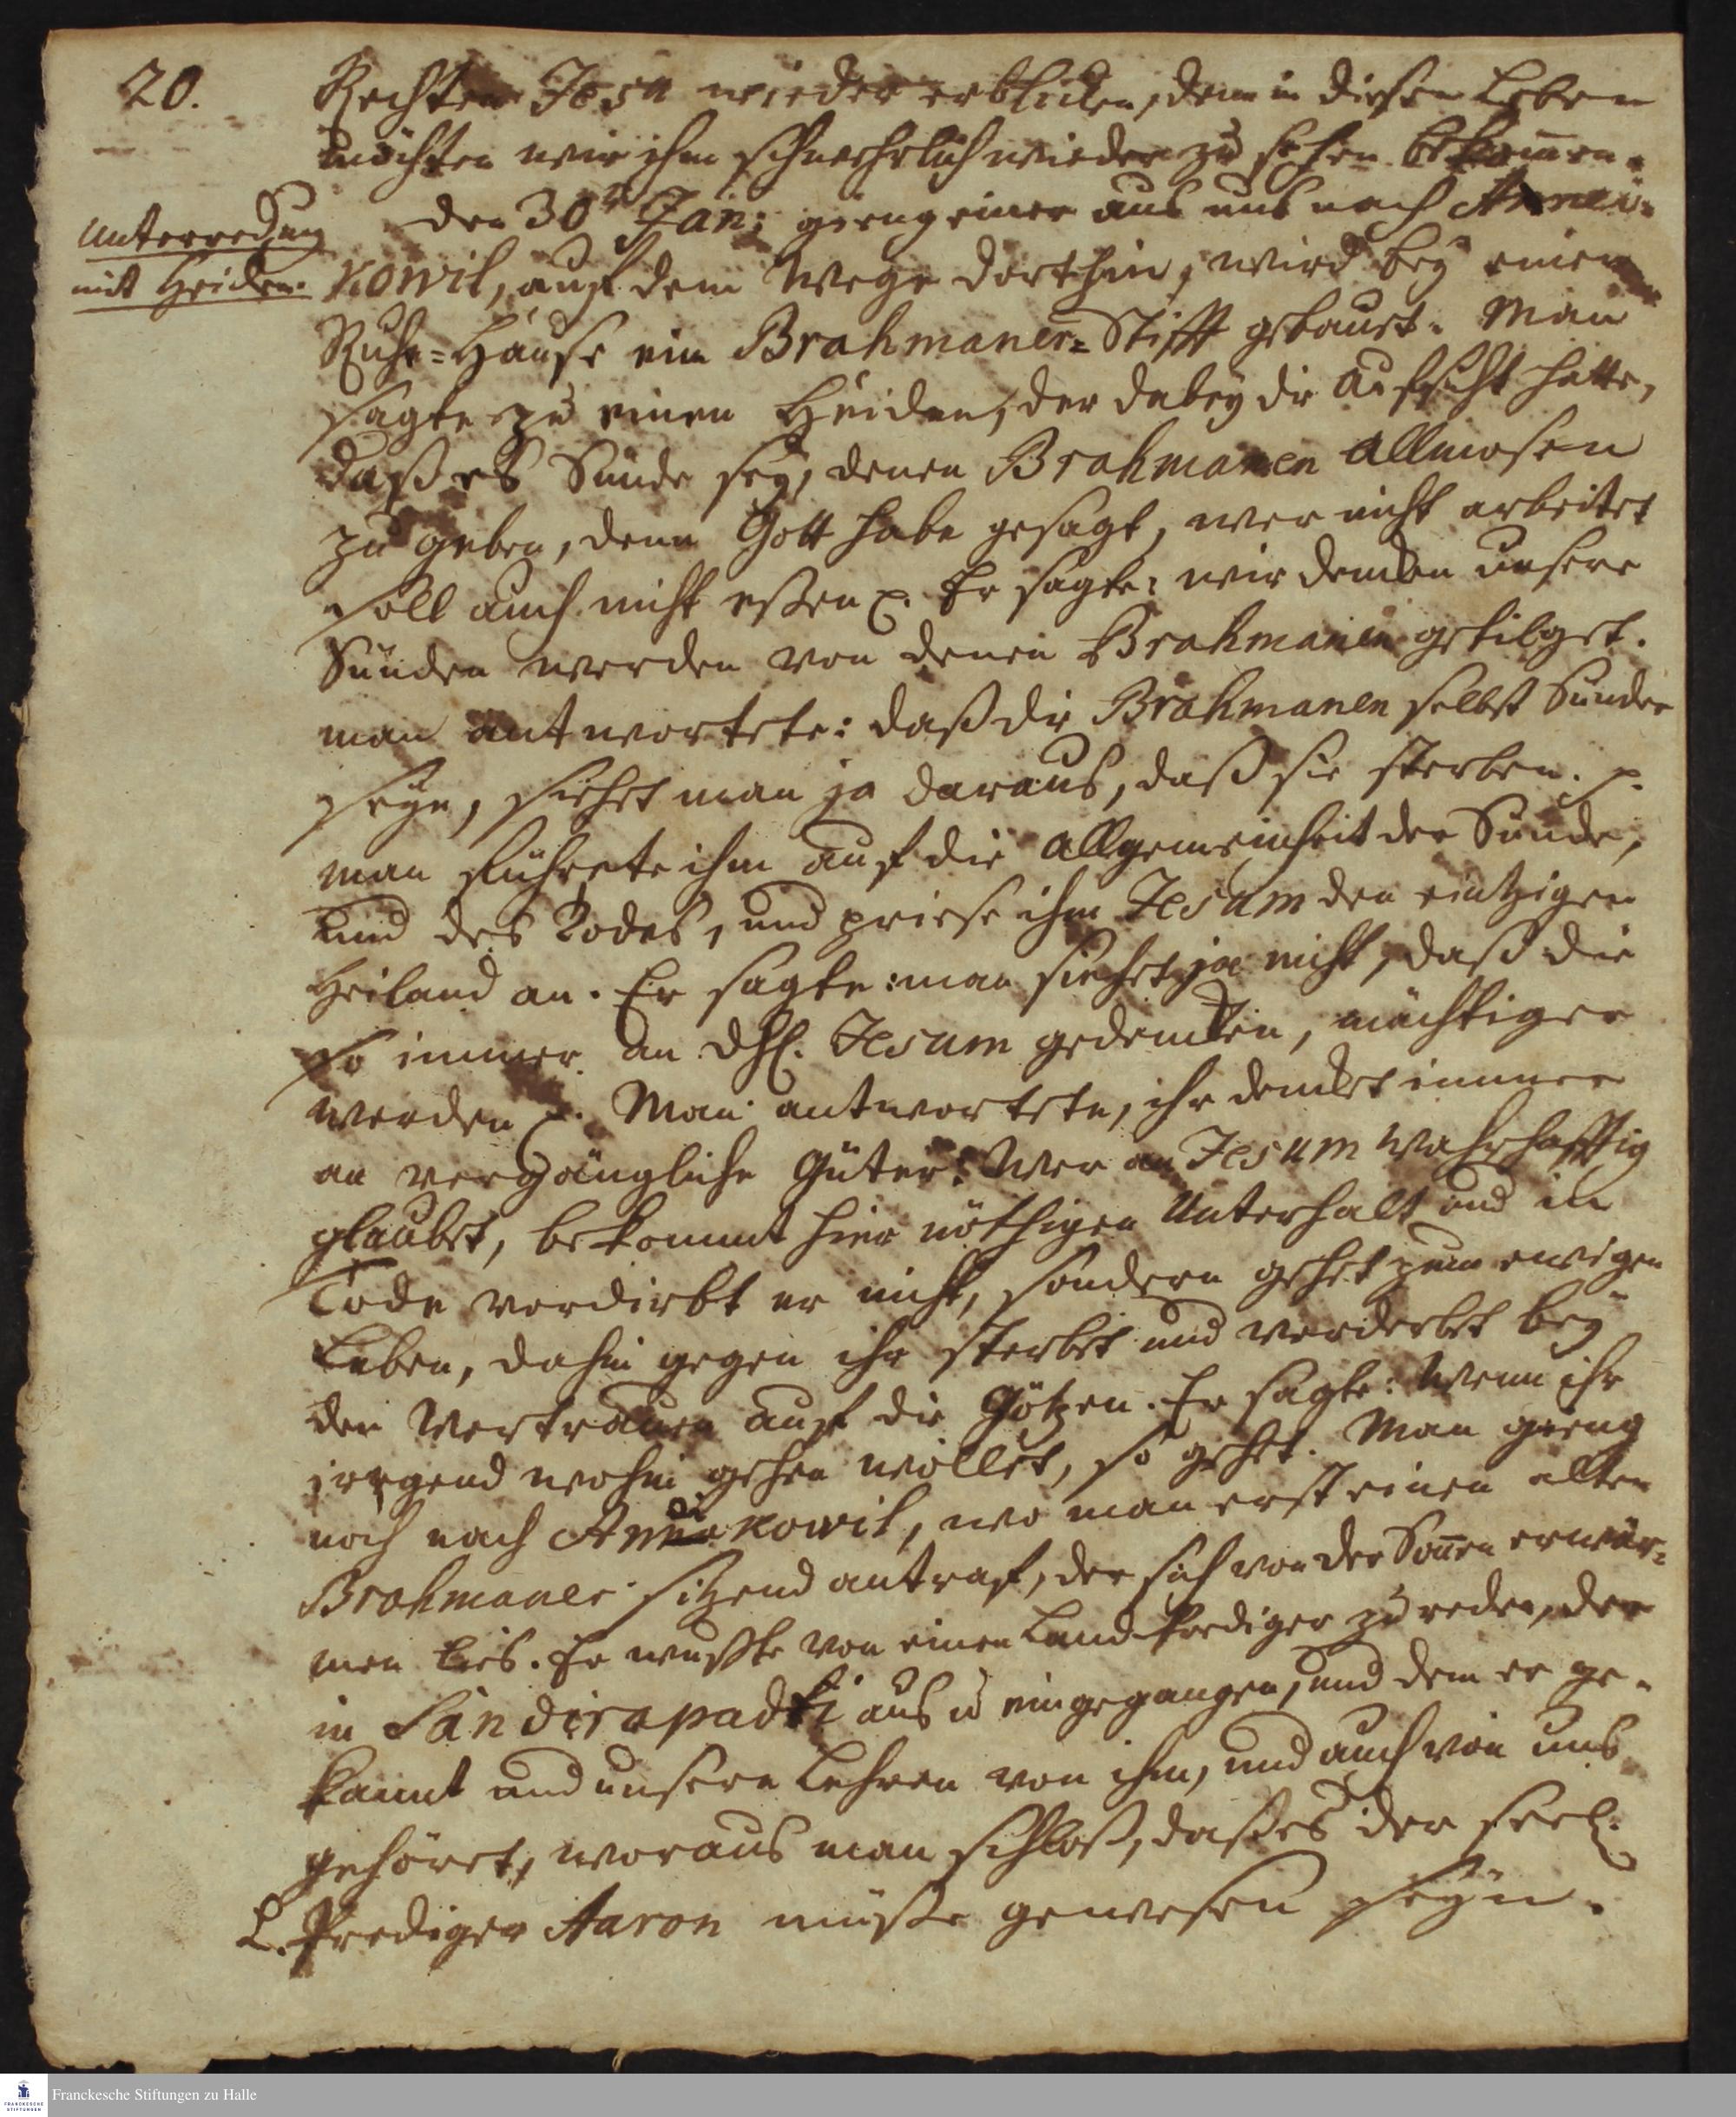 20.
Rechten Jesu wieder erblicken, denn in diesen Leben
möchten wir ihm schwehrlich wieder zu sehen bekom̄en.
Unterredung
mit Heiden.
den 30t Jan: gieng einer aus uns nach Annei-
kowil, auf dem Wege dorthin, wird bey einem
Ruhe-Hause ein Brahmaner-Stifft gebauet. Man
sagte zu einen Heiden, der dabey die Aufsicht hatte,
daß es Sünde sey, denen Brahmanen Allmosen
zu geben, denn Gott habe gesagt, wer nicht arbeitet
soll auch nicht eßen p. Er sagte: wir dencken unsere
Sünden werden von denen Brahmanen getilget.
man antwortete: daß die Brahmanen selbst Sünder
seyn, siehet man ja daraus, daß sie sterben. p.
man führete ihm auf die Allgemeinheit der Sünde,
und des Todes, und priese ihm Jesum den eintzigen
Heiland an. Er sagte: man siehet ja nicht, daß die
so immer an dHl. Jesum gedencken, mächtiger
werden p. Man antwortete, ihr dencket immer
an vergängliche Güter: Wer an Jesum wahrhafftig
glaubet, bekommt hier nöthigen Unterhalt und im
Tode verdirbt er nicht, sondern gehet zum ewigen
Leben, dahin gegen ihr sterbet und verderbet bey
den Vertrauen auf die Götzen. Er sagte: Wenn ihr
irgend wohin gehen wollet, so gehet. Man gieng
noch nach kowil, wo man erst einen alten
Brahmaner sitzend antraf, der sich von der Son̄en erwär-
men lies. Er wußte von einen Land-Prediger zu reden, der
in Sandirapadi aus u eingegangen, und dem er ge-
kannt und unsere Lehren von ihm, und auch von uns
gehöret, woraus man schloß, daß es der seel.
L. Prediger Aaron müße gewesen seyn.
Franckesche Stiftungen zu Halle
FRANCKESCHE
STIFTUNGEN